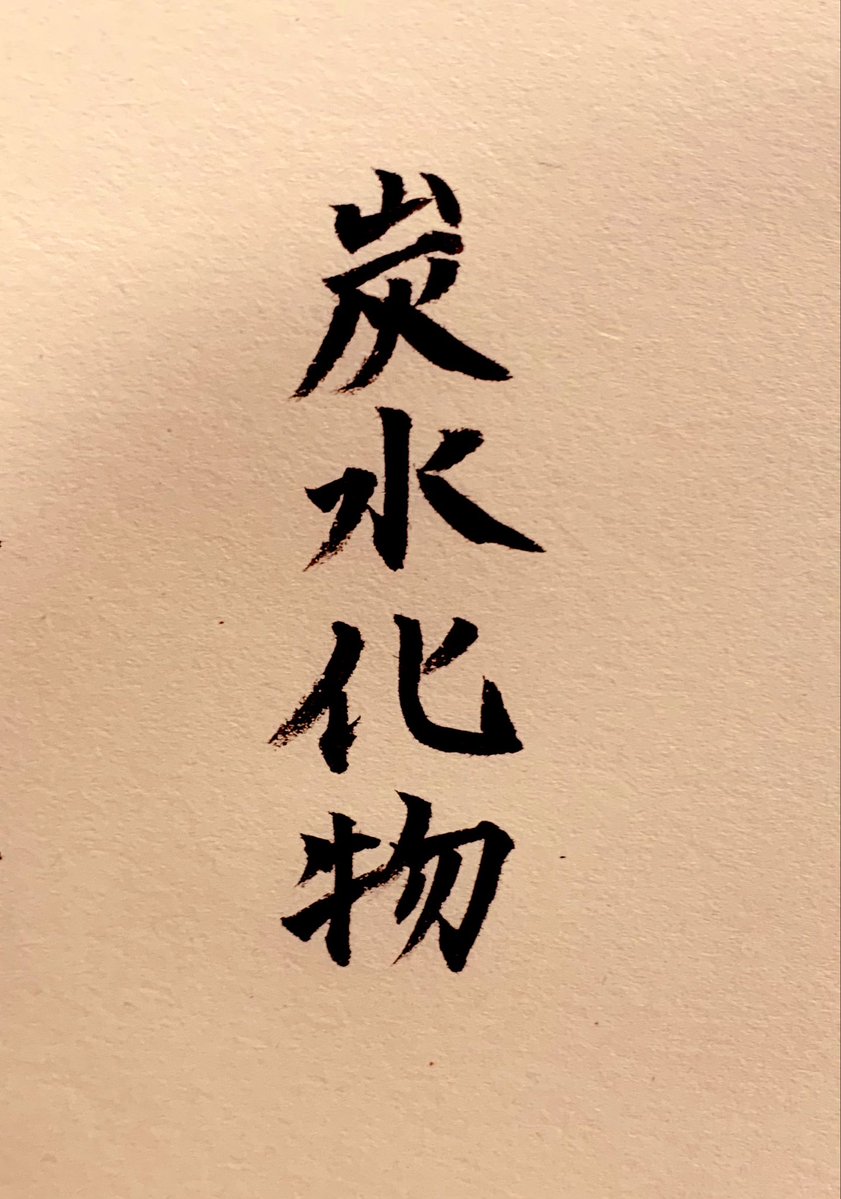 炭水化物